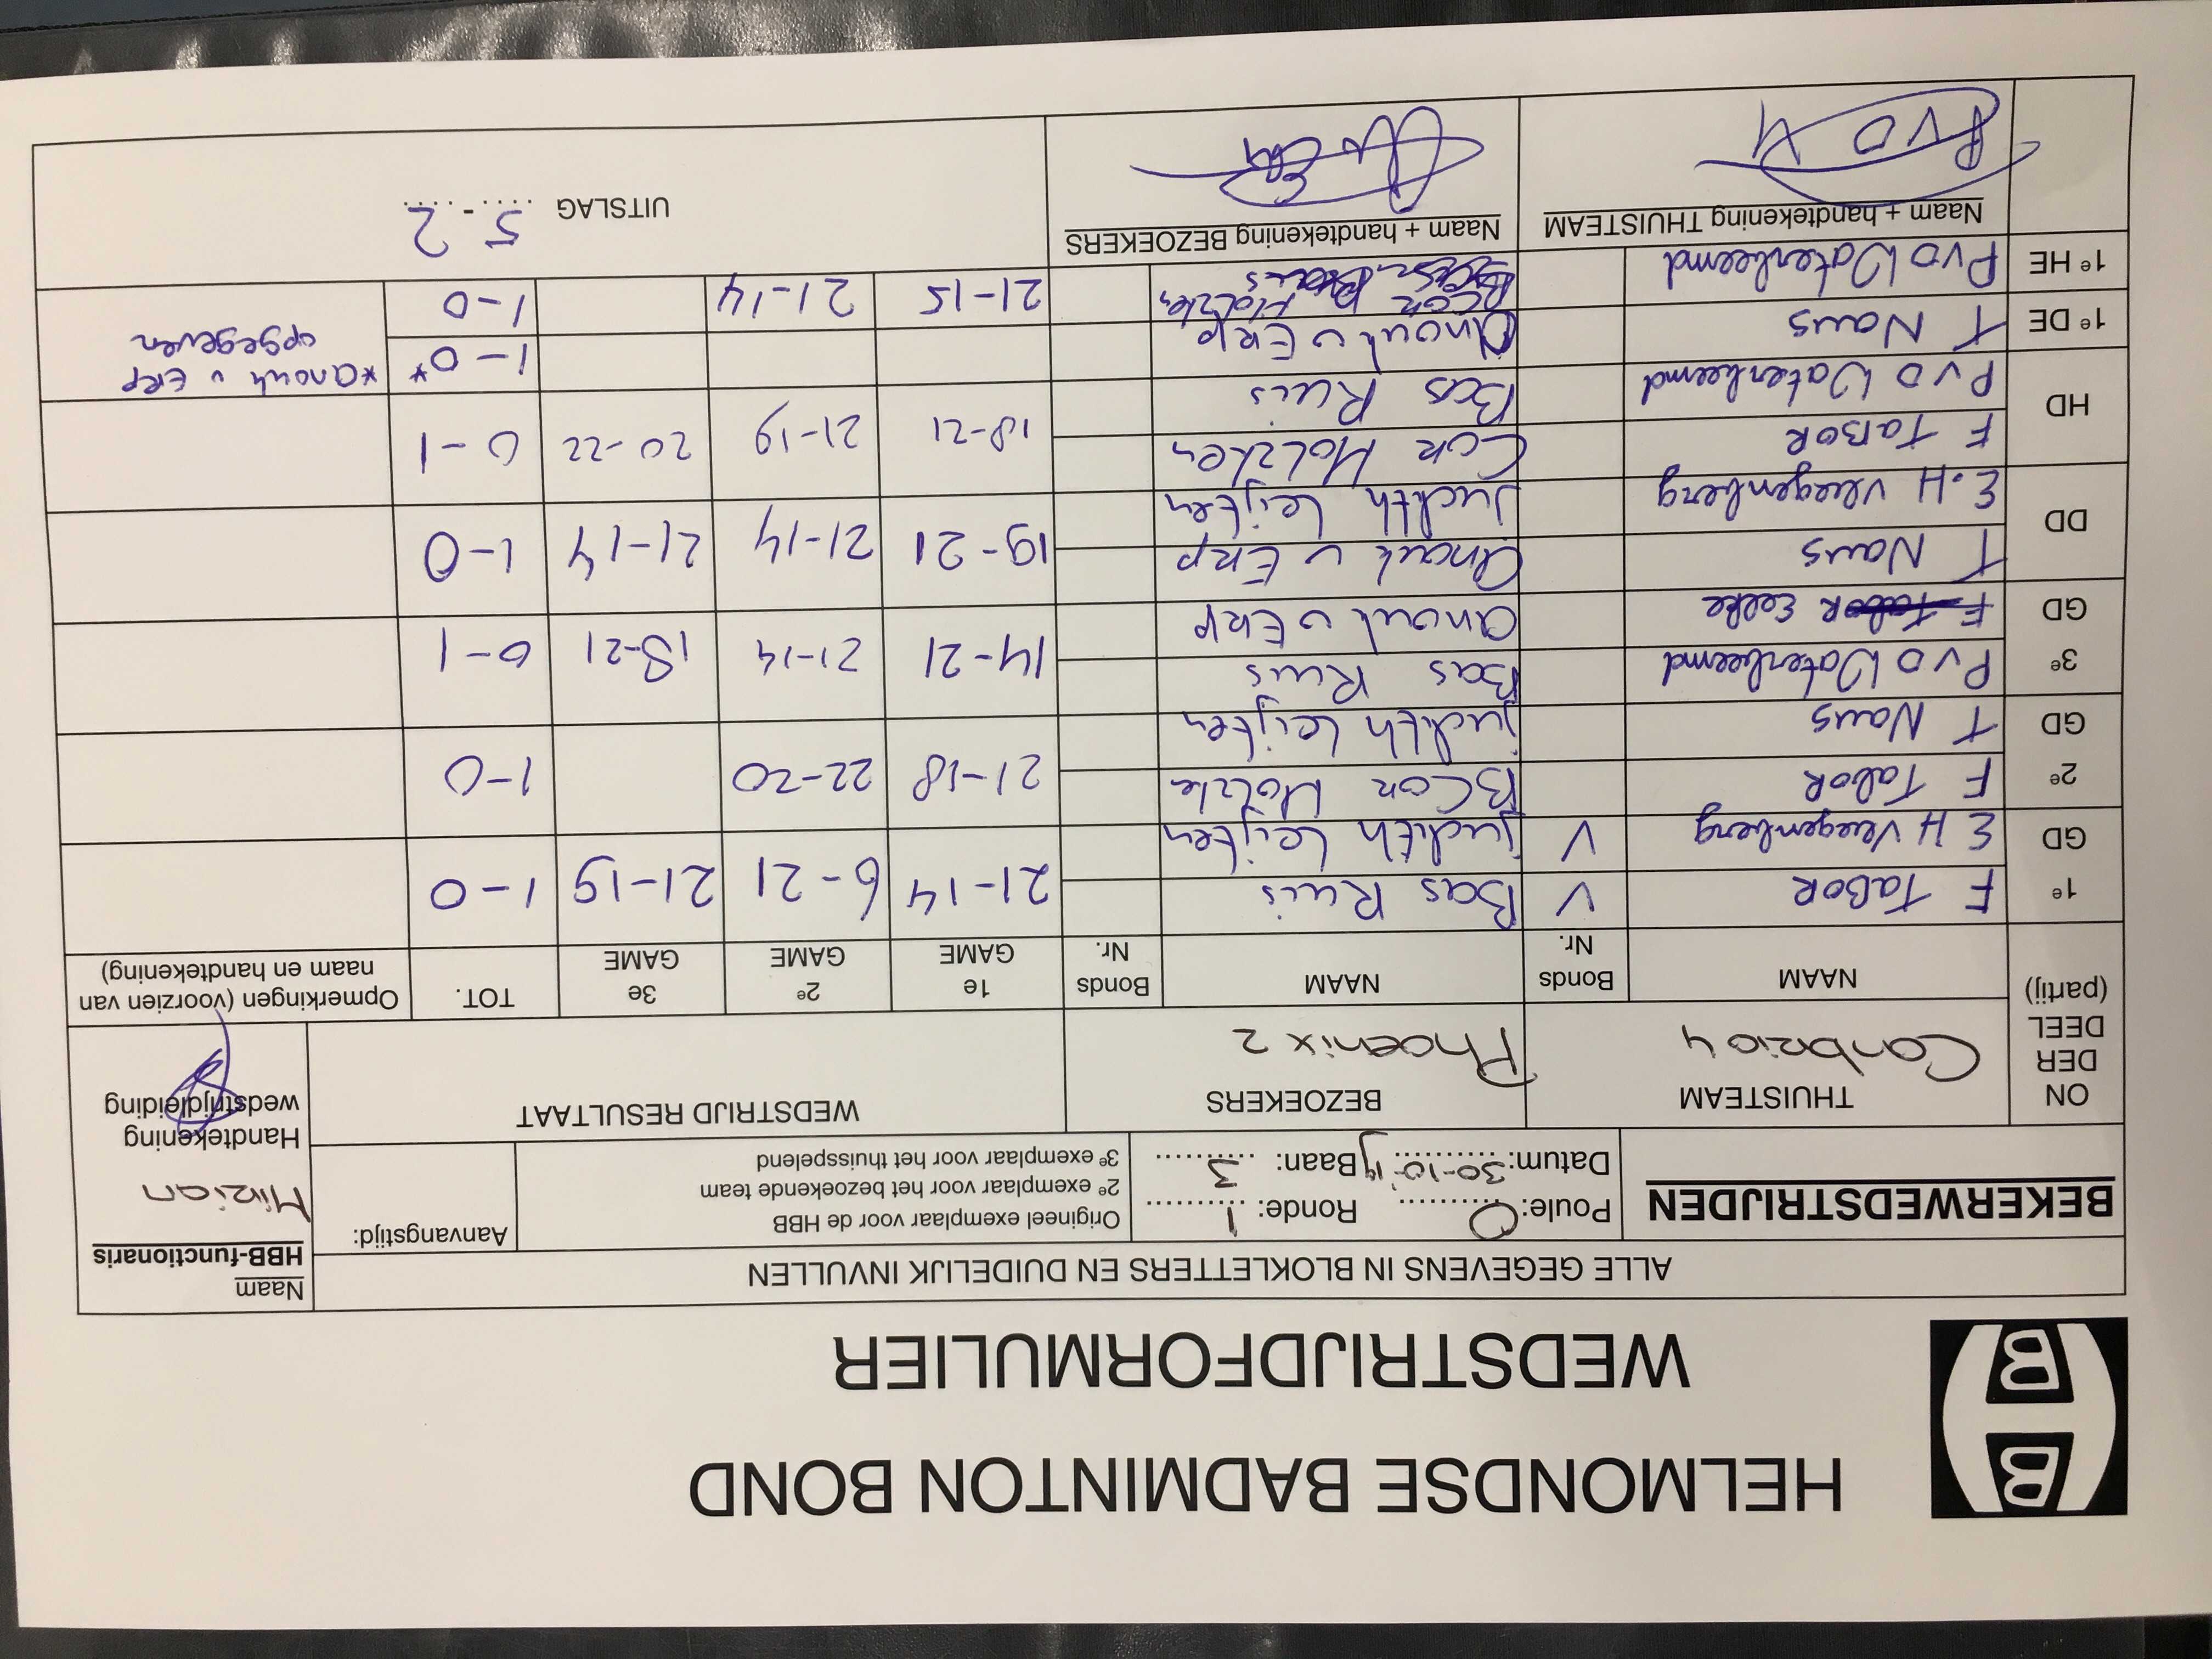 HELMONDSE BADMINTON BOND
WEDSTRIJDFORMULIER
ALLE GEGEVENS IN BLOKLETTERS EN DUIDELIJK INVULLEN
Naam
HBB-functionaris
Mirian
Handtekening
wedstrijdleiding
BEKERWEDSTRIJDEN
Poule: O Ronde: 1
Datum: 30-10-'19 Baan: 3
Origineel exemplaar voor de HBB
2e exemplaar voor het bezoekende team
3e exemplaar voor het thuisspelend
Aanvangstijd:
ON
DER
DEEL
(partij)
THUISTEAM
Conbrio 4
BEZOEKERS
Phoenix 2
WEDSTRIJD RESULTAAT
NAAM
Bonds
Nr.
NAAM
Bonds
Nr.
1e
GAME
2e
GAME
3e
GAME
TOT.
Opmerkingen (voorzien van
naam en handtekening)
1e F TABOR V Bas Ruis 21-14 6-21 21-19 1-0
GD E H Vleegenberg V Judith Leijten
2e F TaboR BCor Holzke 21-18 22-20 1-0
GD T Naus Judith Leijten
3e P v D Waterbeemd Bas Ruis 14-21 21-14 18-21 0-1
GD F Tabor Eefke anouk v ERP
DD T Naus Anouk v ERP 19-21 21-14 21-14 1-0
E.H Vleegenberg Judith Leijten
HD F TaBOR Cor Holzken 18-21 21-19 20-22 0-1
P v D Waterbeemd Bas Ruis
1e DE T Naus Anouk v ERP 1-0* *anouk v ERP
opgegeven
1e HE P v D Waterbeemd Cor Holzken 21-15 21-14 1-0
Naam + handtekening THUISTEAM
PVD
Naam + handtekening BEZOEKERS
UITSLAG 5 - 2